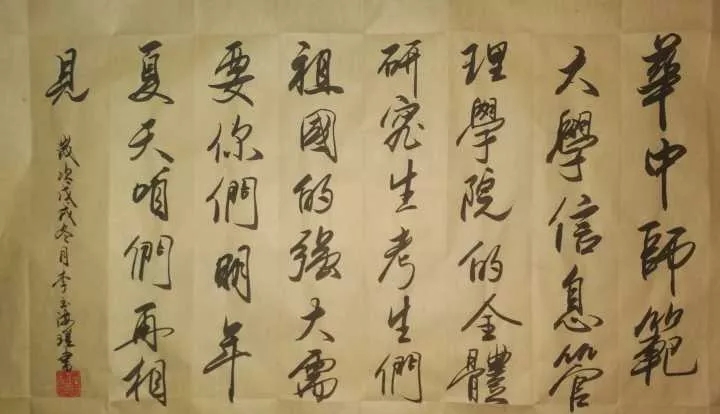 華中師範
大學信息管
理學院的全體
研究生考生們
祖國的强大需
要你們明年
夏天咱們再相
見
歲次戊戌冬月李玉海謹書